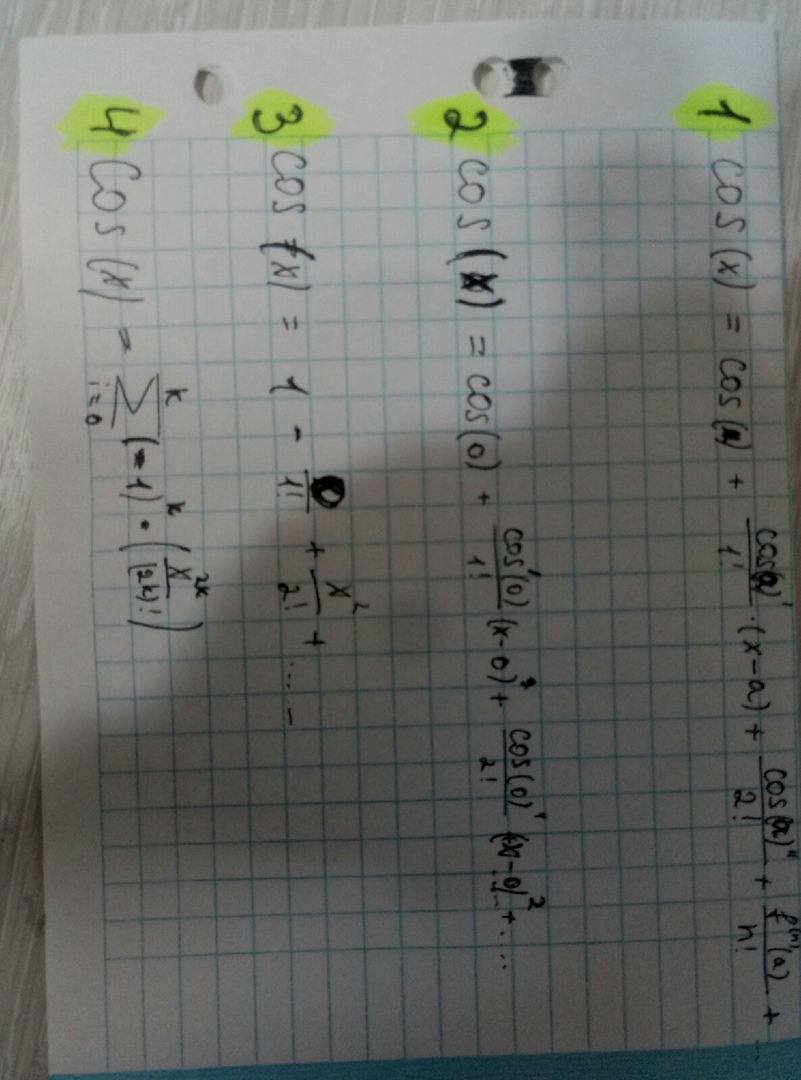 1 cos(x) = cos(a) + cos(a)'/1! · (x-a) + cos(a)''/2! + f⁽ⁿ⁾(a)/n! + ...
2 cos(x) = cos(0) + cos'(0)/1! (x-0) + cos(0)''/2! (x-0)² + ....
3 cos(x) = 1 - 0/1! + x²/2! + ... -
4 Cos(x) = ∑_{i=0}^{k} (-1)^k · (x^{2k}/(2k)!)